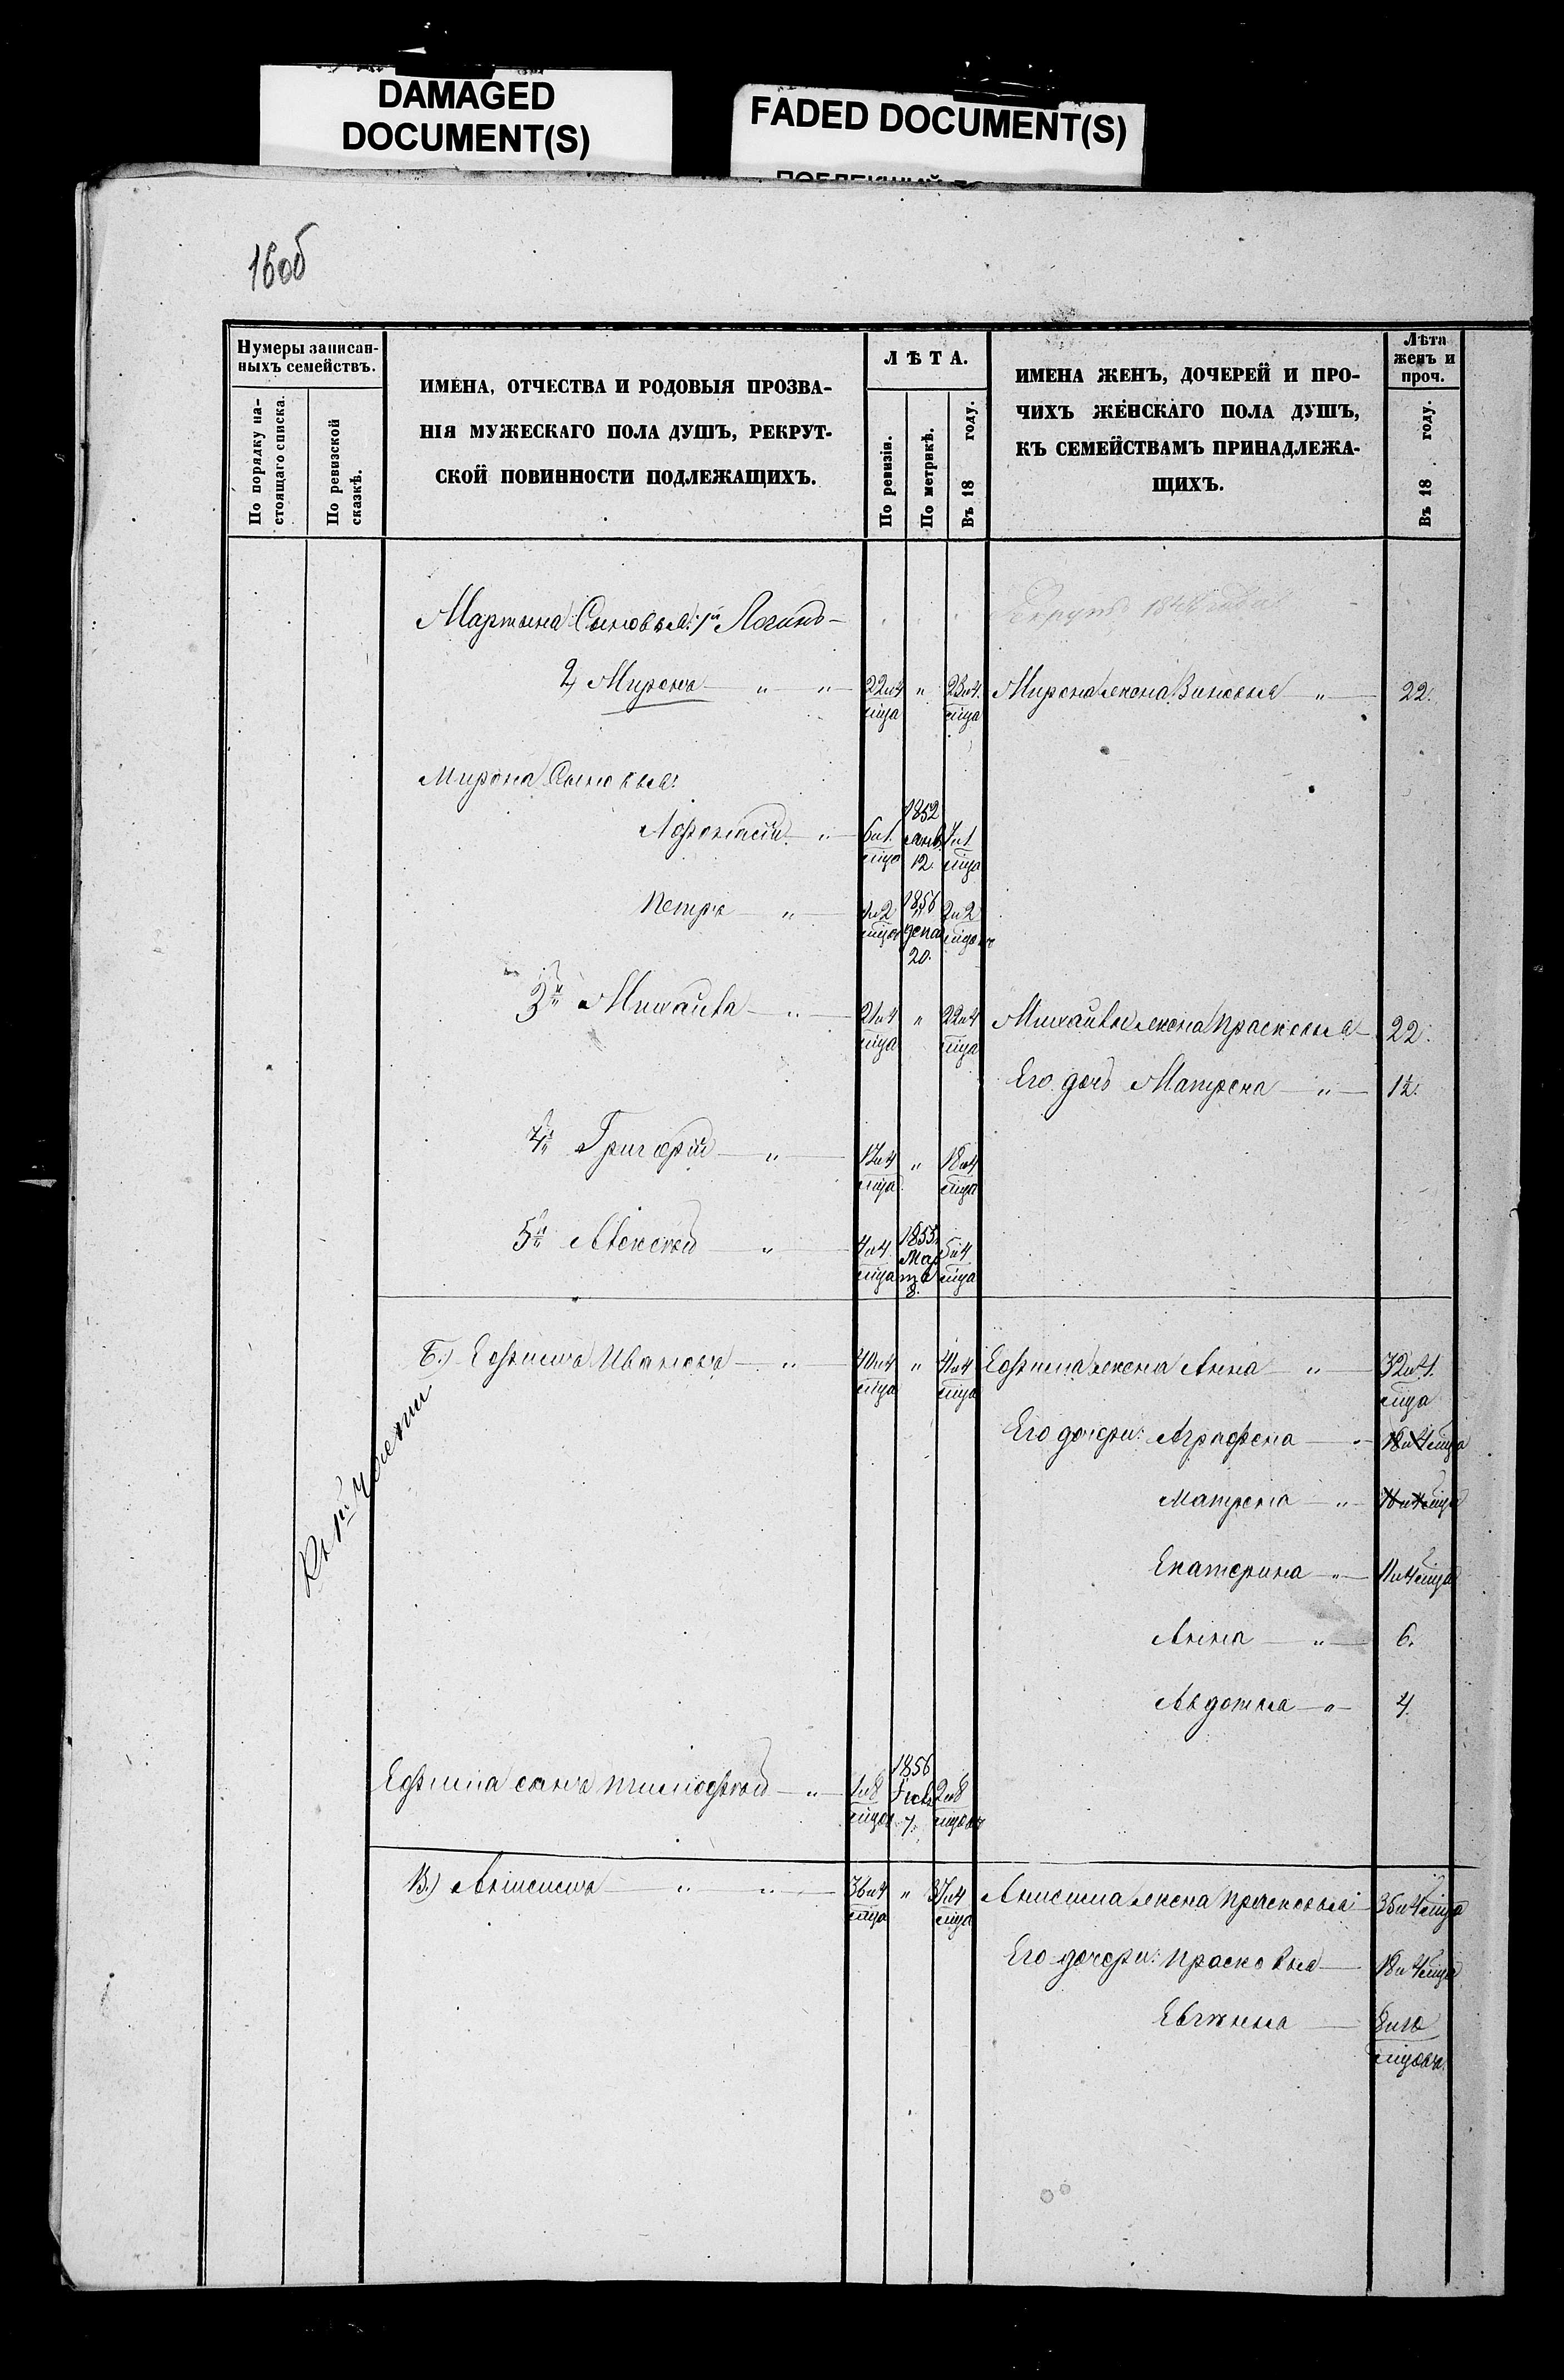 DAMAGED
DOCUMENT(S)
FADED DOCUMENT(S)
16об
Нумеры записан-
ныхъ семействъ.
По порядку на-
стоящаго списка.
По ревизской
сказкѣ.
ИМЕНА, ОТЧЕСТВА И РОДОВЫЯ ПРОЗВА-
НІЯ МУЖЕСКАГО ПОЛА ДУШЪ, РЕКРУТ-
СКОЙ ПОВИННОСТИ ПОДЛЕЖАЩИХЪ.
ЛѢТА.
По ревизіи.
По метрикѣ.
Въ 18 году.
ИМЕНА ЖЕНЪ, ДОЧЕРЕЙ И ПРО-
ЧИХЪ ЖЕНСКАГО ПОЛА ДУШЪ,
КЪ СЕМЕЙСТВАМЪ ПРИНАДЛЕЖА-
ЩИХЪ.
Лѣта
женъ и
проч.
Въ 18 году.
Мартына Сыновья: 1й Логинъ —
2) Миронъ — " — " — 22 и 4 мца " 23 и 4 мца Мирона жена Зиновья " — 22.
Мирона Сыновья:
Афонасій " — 6 и 1 мца 1852 Янв. 12. 7 и 1 мца
Петръ — " — 1 и 2 мца 1856 Дека 20. 2 и 2 мцовъ
3й Михайла — " — 21 и 4 мца " 22 и 4 мца Михайлы жена Прасковья — 22.
Его дочь Матрена — " — 1½.
4й Григорій — " — 17 и 4 мца " 18 и 4 мца
5й Алексѣй — " — 4 и 4 мца 1853. Мартъ 8. 5 и 4 мца
Б.) Ефимъ Ивановъ — " — 40 и 4 мца " 41 и 4 мца Ефима жена Анна — " — 32 и 4. мца
Его дочери: Аграфена — " 18 и 4 мца
Матрена — " — 16 и 4 мца
Екатерина — " — 11 и 4 мца
Анна — " — 6.
Авдотья — " — 4.
Къ 1й Части
Ефима сынъ Тимофѣй — " — 1 и 8 мцов 1856 7. 2 и 8 мцовъ
В.) Анисимъ — " — " — 36 и 4 мца " 37 и 4 мца Анисима жена Прасковья 35 и 4 мца
Его дочери: Прасковья — 18 и 4 мца
Евгѣнья — 8 и 10 мцовъ.